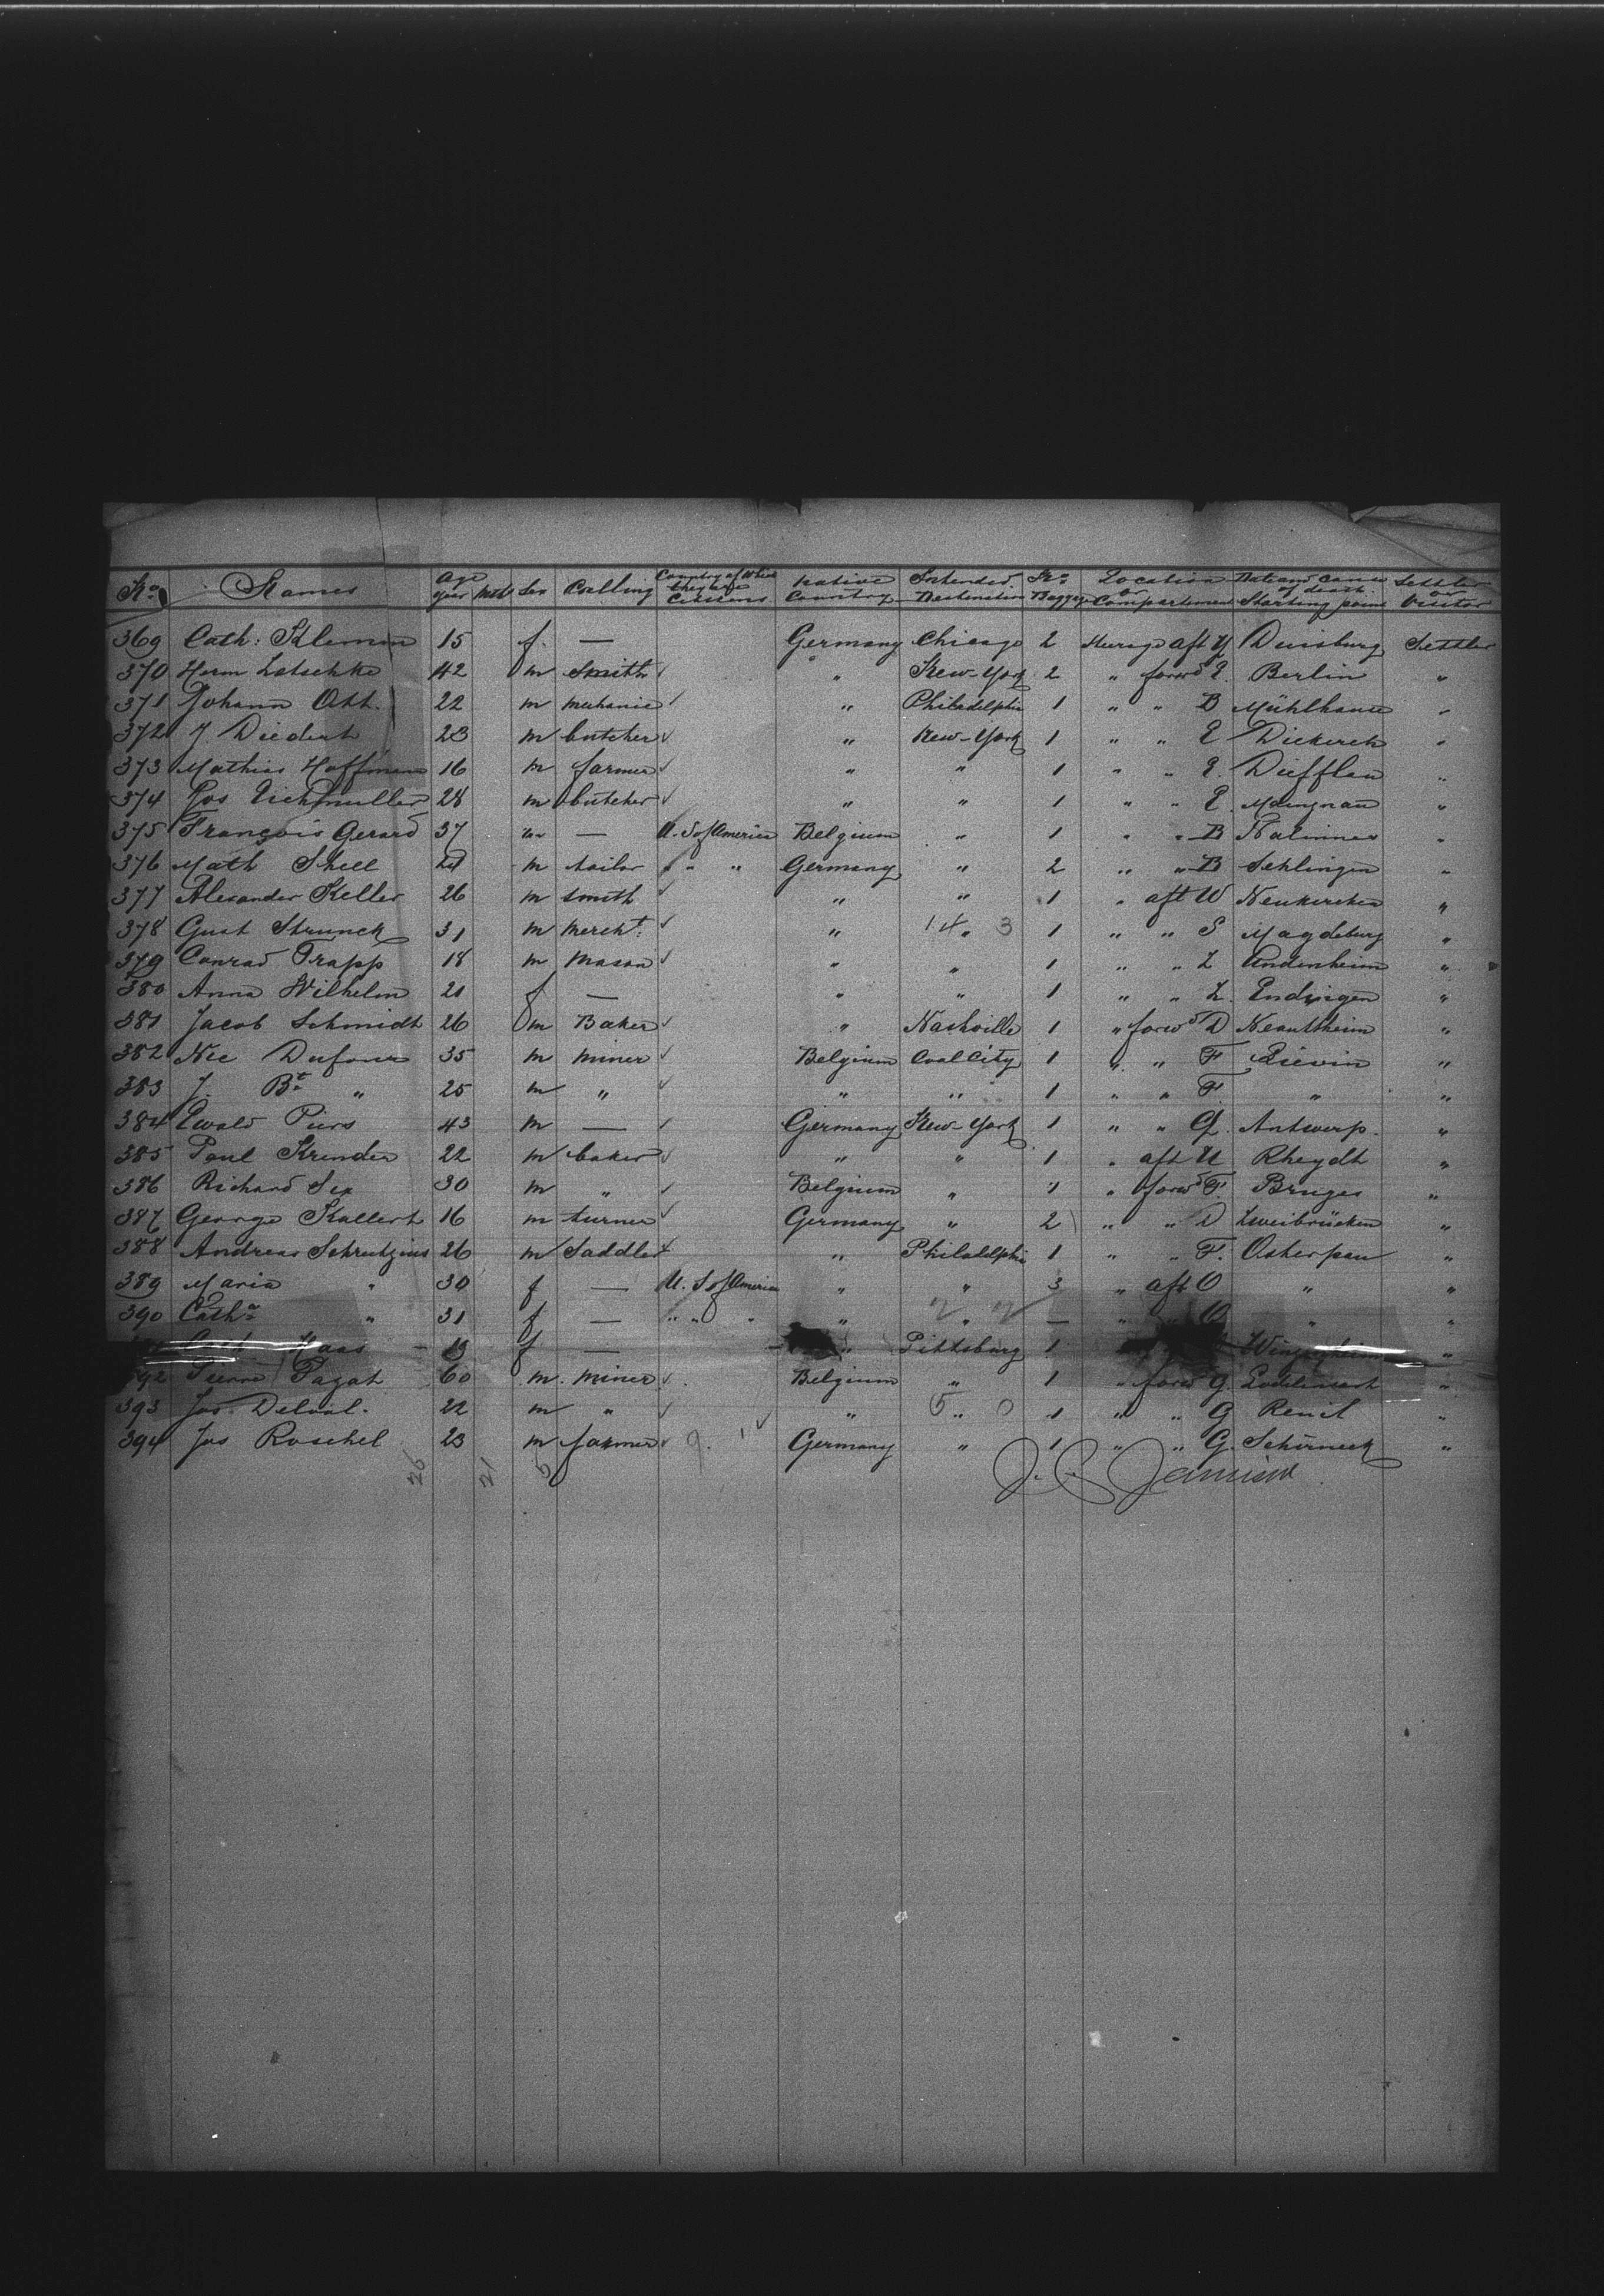 No. Names Age year mth Sex Calling Country of which they are Citizens Native Country Intended Destination No. Baggage Location or Compartement Date and Cause of death. Starting point Settler or Visitor
369 Cath: Klemon 15 f. — Germany Chicago 2 Steerage aft Y Duisburg Settler
370 Herm Latschke 42 m Smith ✓ " New-York 2 " forwd E. Berlin "
371 Johann Ott. 22 m mechanic ✓ " Philadelphia 1 " " B Mühlhause "
372 J. Diedert 23 m butcher ✓ " New-York 1 " " E Diekerch "
373 Mathias Hoffman 16 m farmer ✓ " " 1 " " E. Diefflen "
374 Jos Eichmuller 28 m butcher ✓ " " 1 " " E.
375 François Gerard 37 m — U. S of America Belgium " 1 " " B "
376 Math Skell m tailor " " " Germany " 2 " " B Sehlingen "
377 Alexander Keller 26 m smith ✓ " " 1 " aft W Neukirchen "
378 Gust Strunck 31 m Mercht: ✓ " 14 " 3 1 " " S Magdeburg "
379 Conrad Trapp 18 m Mason ✓ " " 1 " " Z Andenheim "
380 Anna Wilhelm 21 f — " " 1 " " Z. Endingen "
381 Jacob Schmidt 26 m Baker ✓ " Nashville 1 " forwd D "
382 Nic 35 m miner ✓ Belgium Coal City 1 " " F Lievin "
383 J. Bt. " 25 m " ✓ " " 1 " " F. " "
384 Ewald Piers 43 m — ✓ Germany New-York 1 " " G. Antwerp. "
385 Paul Krender 22 m baker ✓ " " 1 " aft U Rheydt "
386 Richard Sex 30 m " ✓ Belgium " 1 " forwd F. Bruges "
387 George Kallert 16 m turner ✓ Germany " 2 " " D Zweibrücken "
388 Andreas Schrutzius 26 m Saddler ✓ " Philadelphia 1 " " F. Osherpau "
389 Maria " 30 f — U. S of America " " 3 " aft O " "
390 Catha " 31 f — " " " " " — " " O " "
Haas 19 f — " Pittsburg 1 "
392 Pierre Pagat 60 m. miner ✓ Belgium " 1 " forwd G. Lodelinsart "
393 Jos. Delval. 22 m " ✓ " 5 " 0 1 " " G Renil "
394 Jos Roschel 23 m farmer ✓ 9. 1 ✓ Germany " 1 " " G. Schirneck "
26 21 5 J. B. Jamison